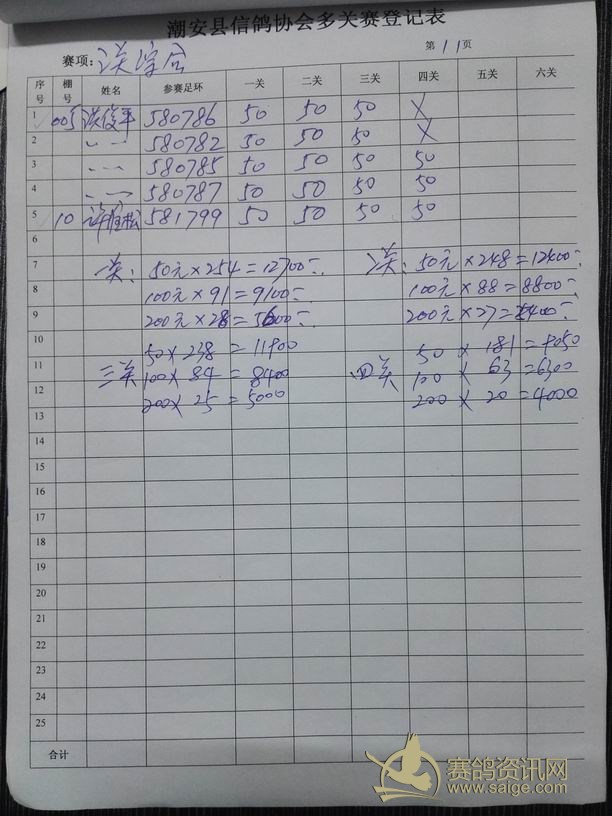 潮安县信鸽协会多关赛登记表
赛项: 关综合 第 11 页
序号 棚号 姓名 参赛足环 一关 二关 三关 四关 五关 六关
1 005 洪俊平 580786 50 50 50 X
2 580782 50 50 50 X
3 580785 50 50 50 50
4 580787 50 50 50 50
5 10 581799 50 50 50 50
6
7 一关: 50元×254=12700 二关: 50元×248=12400
8 100元×91=9100 100元×88=8800
9 200元×28=5600 200元×27=5400
10 50×238=11900 50×181=9050
11 三关 100×84=8400 四关 100×63=6300
12 200×25=5000 200×20=4000
13
14
15
16
17
18
19
20
21
22
23
24
25
合计
赛鸽资讯网
www.saige.com